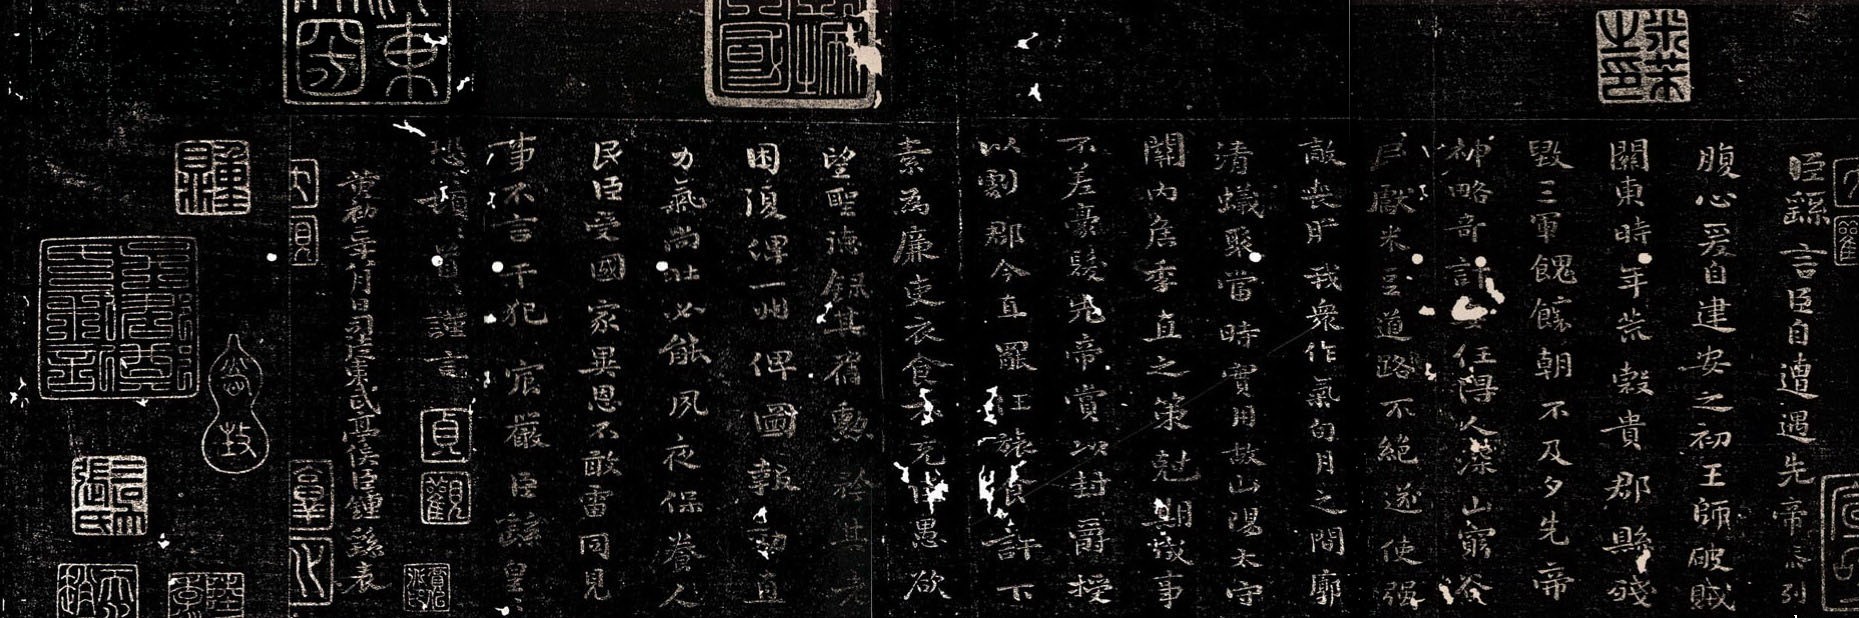 臣繇言臣自遭遇先帝忝列
腹心爰自建安之初王師破賊
關東時年荒穀貴郡縣殘
毀三軍餽饟朝不及夕先帝
神略奇計委任得人深山窮谷
民獻米豆道路不絕遂使强
敵喪膽我衆作氣旬月之間廓
清蟻聚當時實用故山陽太守
關內侯季直之策剋期成事
不差豪髮先帝賞以封爵授
以劇郡今直罷任旅食許下
素為廉吏衣食不充臣愚欲
望聖德錄其舊勳矜其老
困復俾一州俾圖報效直
力氣尚壯必能夙夜保養人
民臣受國家異恩不敢雷同見
事不言干犯宸嚴臣繇皇
恐頓首謹言
黃初二年八月日司徒東武亭侯臣鍾繇表
米芾之印
貞
觀